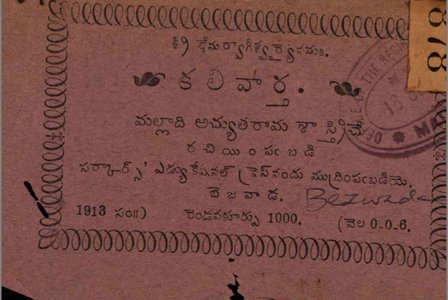 శ్రీ ధేనువాగీశ్వర్యైనమః.
కలివార్త.
మల్లాది అచ్యుతరామ శాస్త్రిచే
రచియింపఁబడి
సర్కార్స్' ఎడ్యుకేషనల్ ప్రెస్‌నందు ముద్రింపఁబడియె.
బెజవాడ. Bezwada
1913 సం॥) రెండవకూర్పు 1000. (వెల 0-0-6.
OF THE REGI